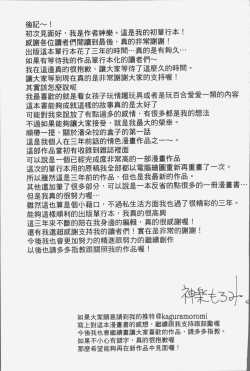 後記～！
初次見面好，我是作者神樂。這是我的初單行本！
感謝各位讀者們閱讀到最後，真的非常謝謝！
出版這本單行本花了三年的時間…真的是有夠久…
如果有等待我的作品單行本化的讀者們～
我在這邊真的很抱歉，讓大家等待了這麼久的時間。
讓大家等到現在真的是非常謝謝大家的支持喔！
其實該怎麼說呢
我最喜歡的就是看女孩子玩情趣玩具或者是玩百合愛愛一類的內容
這本書能夠成就這樣的故事真的是太好了
可能對我來說放了有點過多的感情，有很多都是我的想法
不過如果能夠讓大家接受，就是我最大的榮幸。
順帶一提，關於潘朵拉的盒子的第一話
這是我個人在三年前話的情色漫畫作品之一。
這部作品當初有收錄到雜誌裡面
可以說是一個已經完成度非常高的一部漫畫作品
這次的單行本用的原稿我全部都以電腦繪圖重新再重畫了一次。
所以雖然這是三年前的作品，但也是我最新的作品。
其他還加筆了很多部分，可以說是一本反省的點很多的一冊漫畫書…
但是我真的很努力喔…
雖然這也算是個小藉口，不過私生活方面我也過了很精彩的三年。
能夠這樣順利的出版單行本，我真的很高興
這三年來不斷的陪在我身邊的編輯，真的很感謝喔！
還有我還超感謝支持我的讀者們！實在是非常的謝謝！
今後我也會更加努力的精進跟努力的繼續創作
以後也請多多指教跟關照我的作品喔！
神楽もろみ。
如果大家願意請到我的推特@kaguramoromi
寫上對這本漫畫書的感想，繼續跟我支持跟鼓勵喔
今後我也會繼續畫讓大家喜歡的作品，請多多指教。
如果不小心有錯字，真的很抱歉喔
那麼希望能夠再在新作品中見面喔！